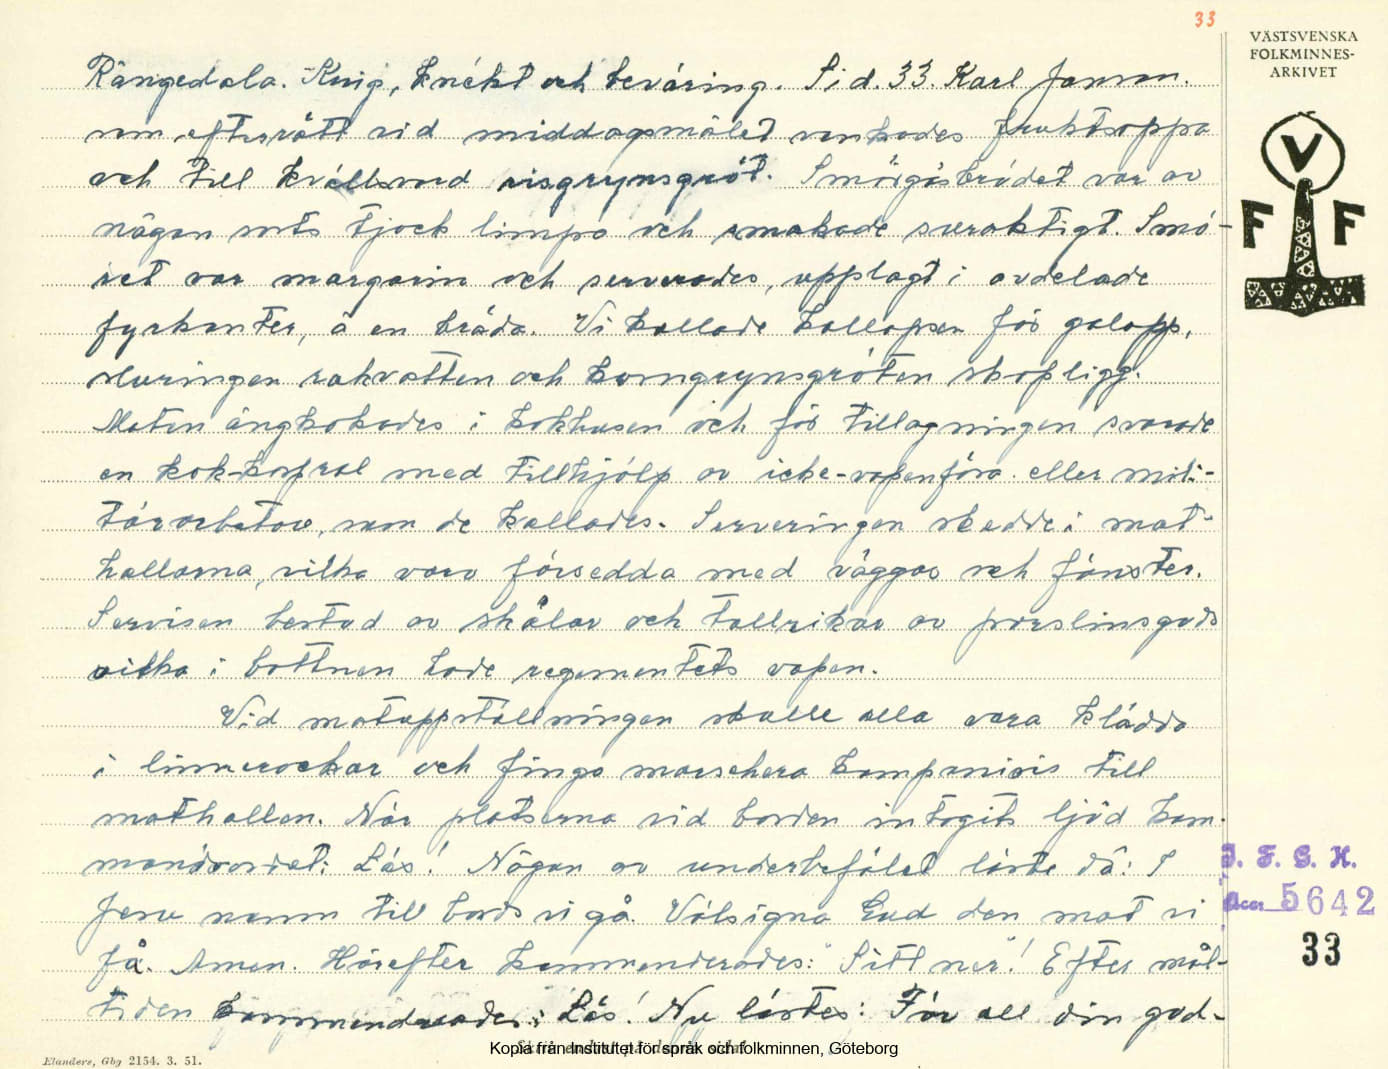 33
VÄSTSVENSKA
FOLKMINNES-
ARKIVET
V
F F
Rångedala. Krig, knekt och beväring. Sid. 33. Karl Janson.
som efterrätt vid middagsmålet vankades fruktsoppa
och till kvällsvard risgrynsgröt. Smörgåsbrödet var av
någon sorts tjock limpa och smakade suraktigt. Smö-
ret var margarin och serverades, upplagt i avdelade
fyrkanter, å en bräda. Vi kallade kallopsen för galopp,
sluringen rakvatten och korngrynsgröten skopligg.
Maten ångkokades i kokhusen och för tillagningen svarade
en kok-korpral med tillhjälp av icke-vapenföra eller mili-
tärarbetare, som de kallades. Serveringen skedde i mat-
hallarna, vilka voro försedda med väggar och fönster.
Servisen bestod av skålar och tallrikar av porslinsgods
vilka i bottnen hade regementets vapen.
Vid matuppställningen skulle alla vara klädda
i linnerockar och fingo marschera kompanivis till
mathallen. När platserna vid borden intagits ljöd kom-
mandoordet: Läs! Någon av underbefälet läste då: I
Jesu namn till bords vi gå. Välsigna Gud den mat vi
få. Amen. Härefter kommenderades: "Sitt ner"! Efter mål-
tiden kommenderades: Läs! Nu lästes: För all din god-
I. F. G. H.
Acc. 5642
33
Kopia från Institutet för språk och folkminnen, Göteborg
Elanders, Gbg 2154. 3. 51.